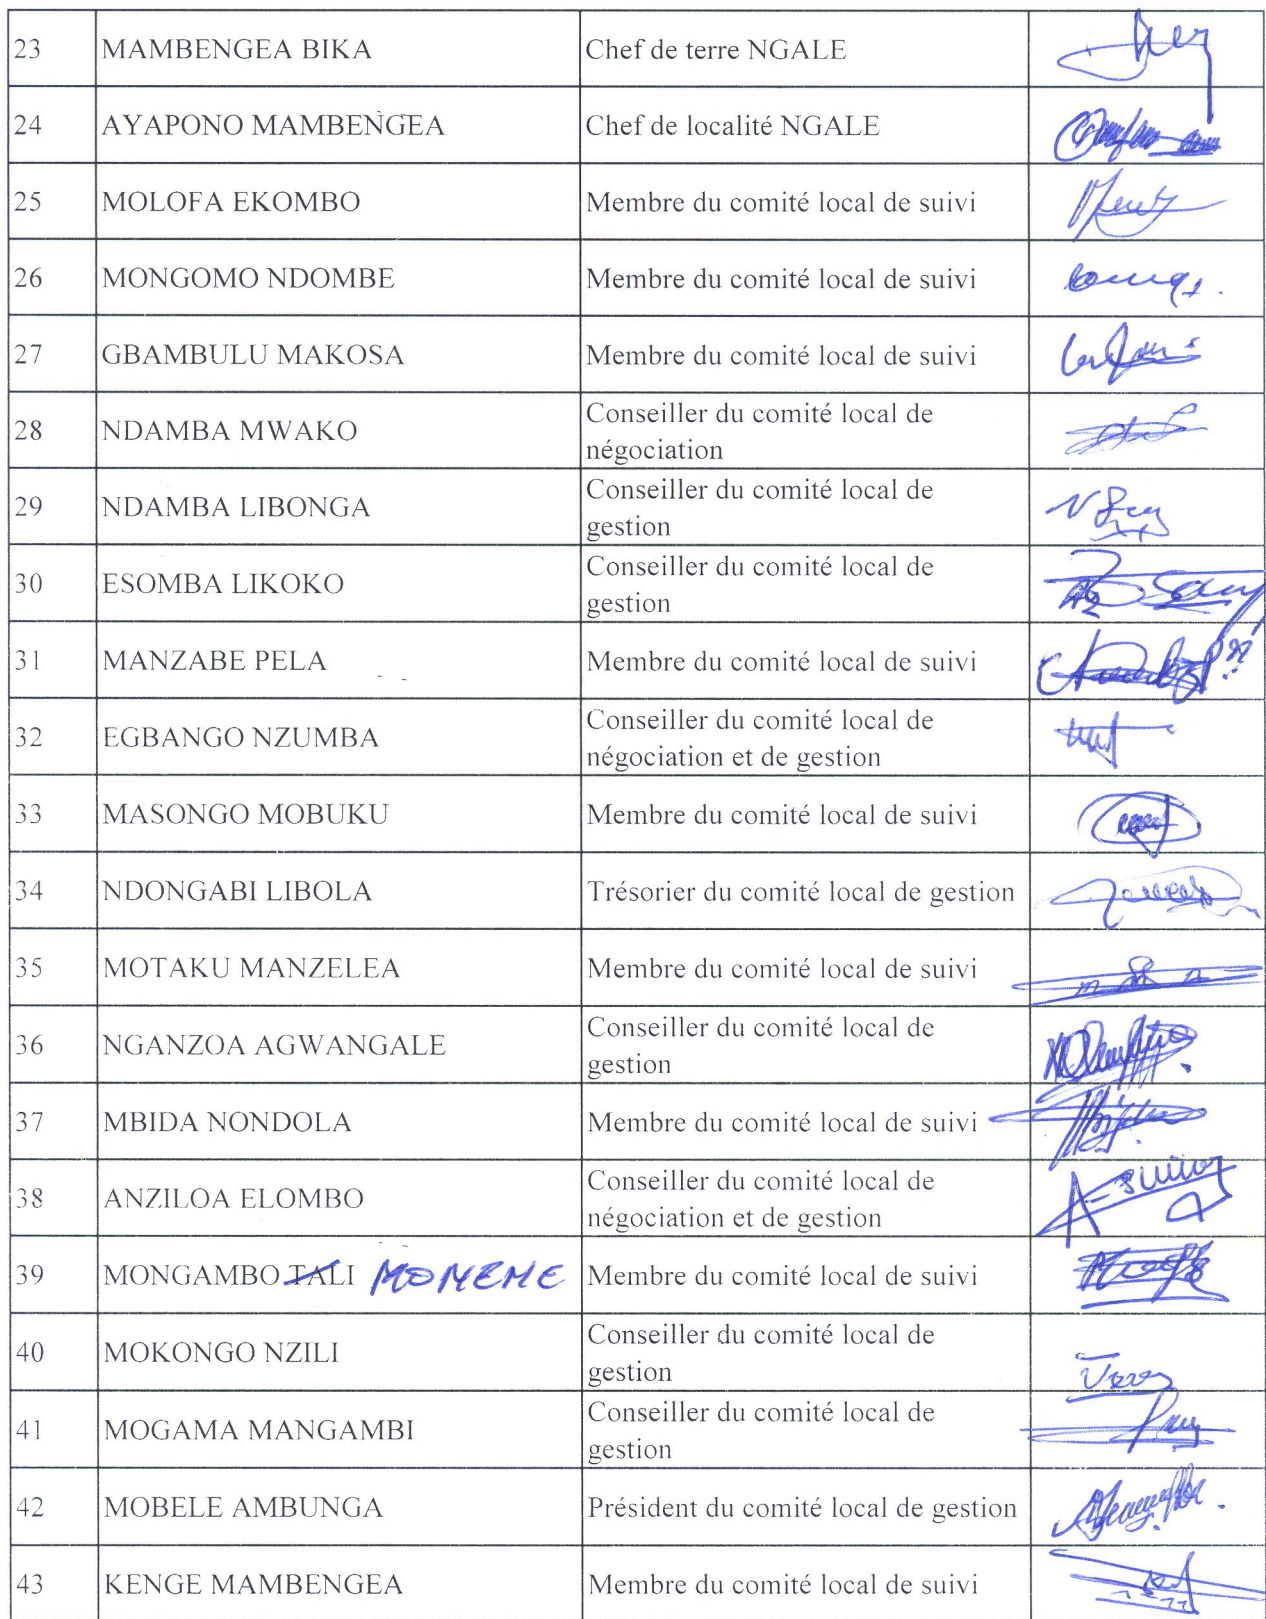 23 MAMBENGEA BIKA Chef de terre NGALE
24 AYAPONO MAMBENGEA Chef de localité NGALE
25 MOLOFA EKOMBO Membre du comité local de suivi
26 MONGOMO NDOMBE Membre du comité local de suivi
27 GBAMBULU MAKOSA Membre du comité local de suivi
28 NDAMBA MWAKO Conseiller du comité local de
négociation
29 NDAMBA LIBONGA Conseiller du comité local de
gestion
30 ESOMBA LIKOKO Conseiller du comité local de
gestion
31 MANZABE PELA Membre du comité local de suivi
32 EGBANGO NZUMBA Conseiller du comité local de
négociation et de gestion
33 MASONGO MOBUKU Membre du comité local de suivi
34 NDONGABI LIBOLA Trésorier du comité local de gestion
35 MOTAKU MANZELEA Membre du comité local de suivi
36 NGANZOA AGWANGALE Conseiller du comité local de
gestion
37 MBIDA NONDOLA Membre du comité local de suivi
38 ANZILOA ELOMBO Conseiller du comité local de
négociation et de gestion
39 MONGAMBO TALI MOMEME Membre du comité local de suivi
40 MOKONGO NZILI Conseiller du comité local de
gestion
41 MOGAMA MANGAMBI Conseiller du comité local de
gestion
42 MOBELE AMBUNGA Président du comité local de gestion
43 KENGE MAMBENGEA Membre du comité local de suivi